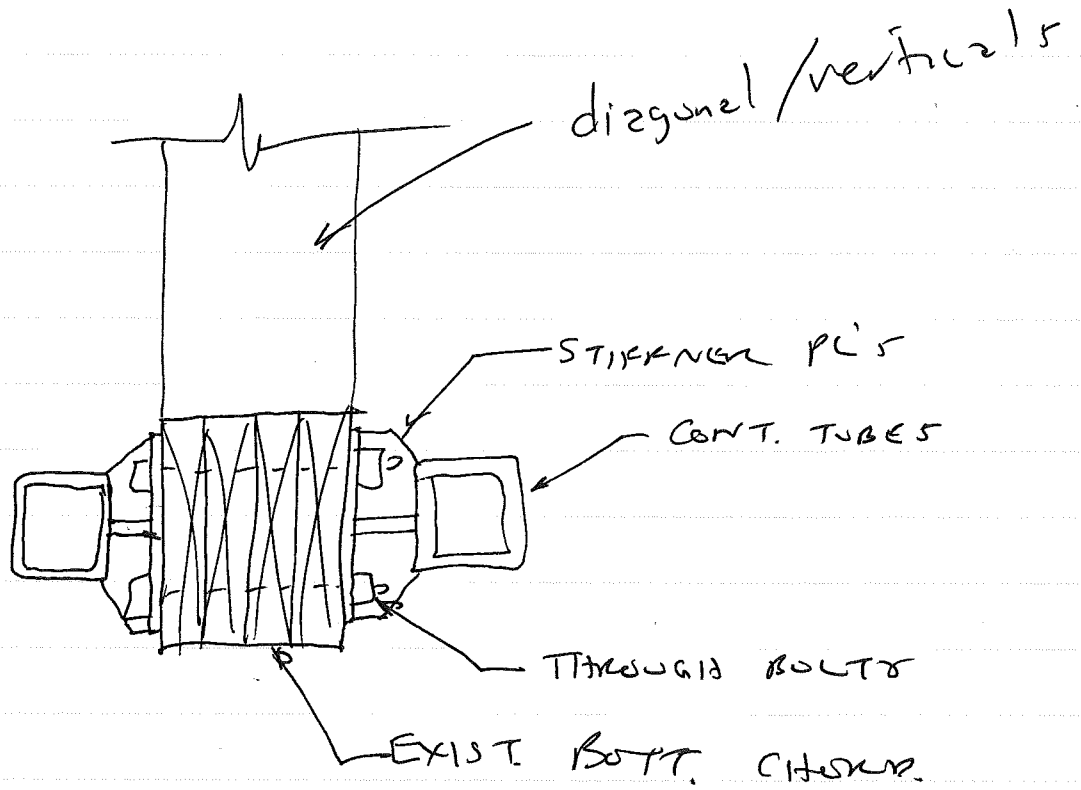 diagonal/verticals
STIFFNER PL's
CONT. TUBES
THROUGH BOLTS
EXIST. BOTT. CHORD.